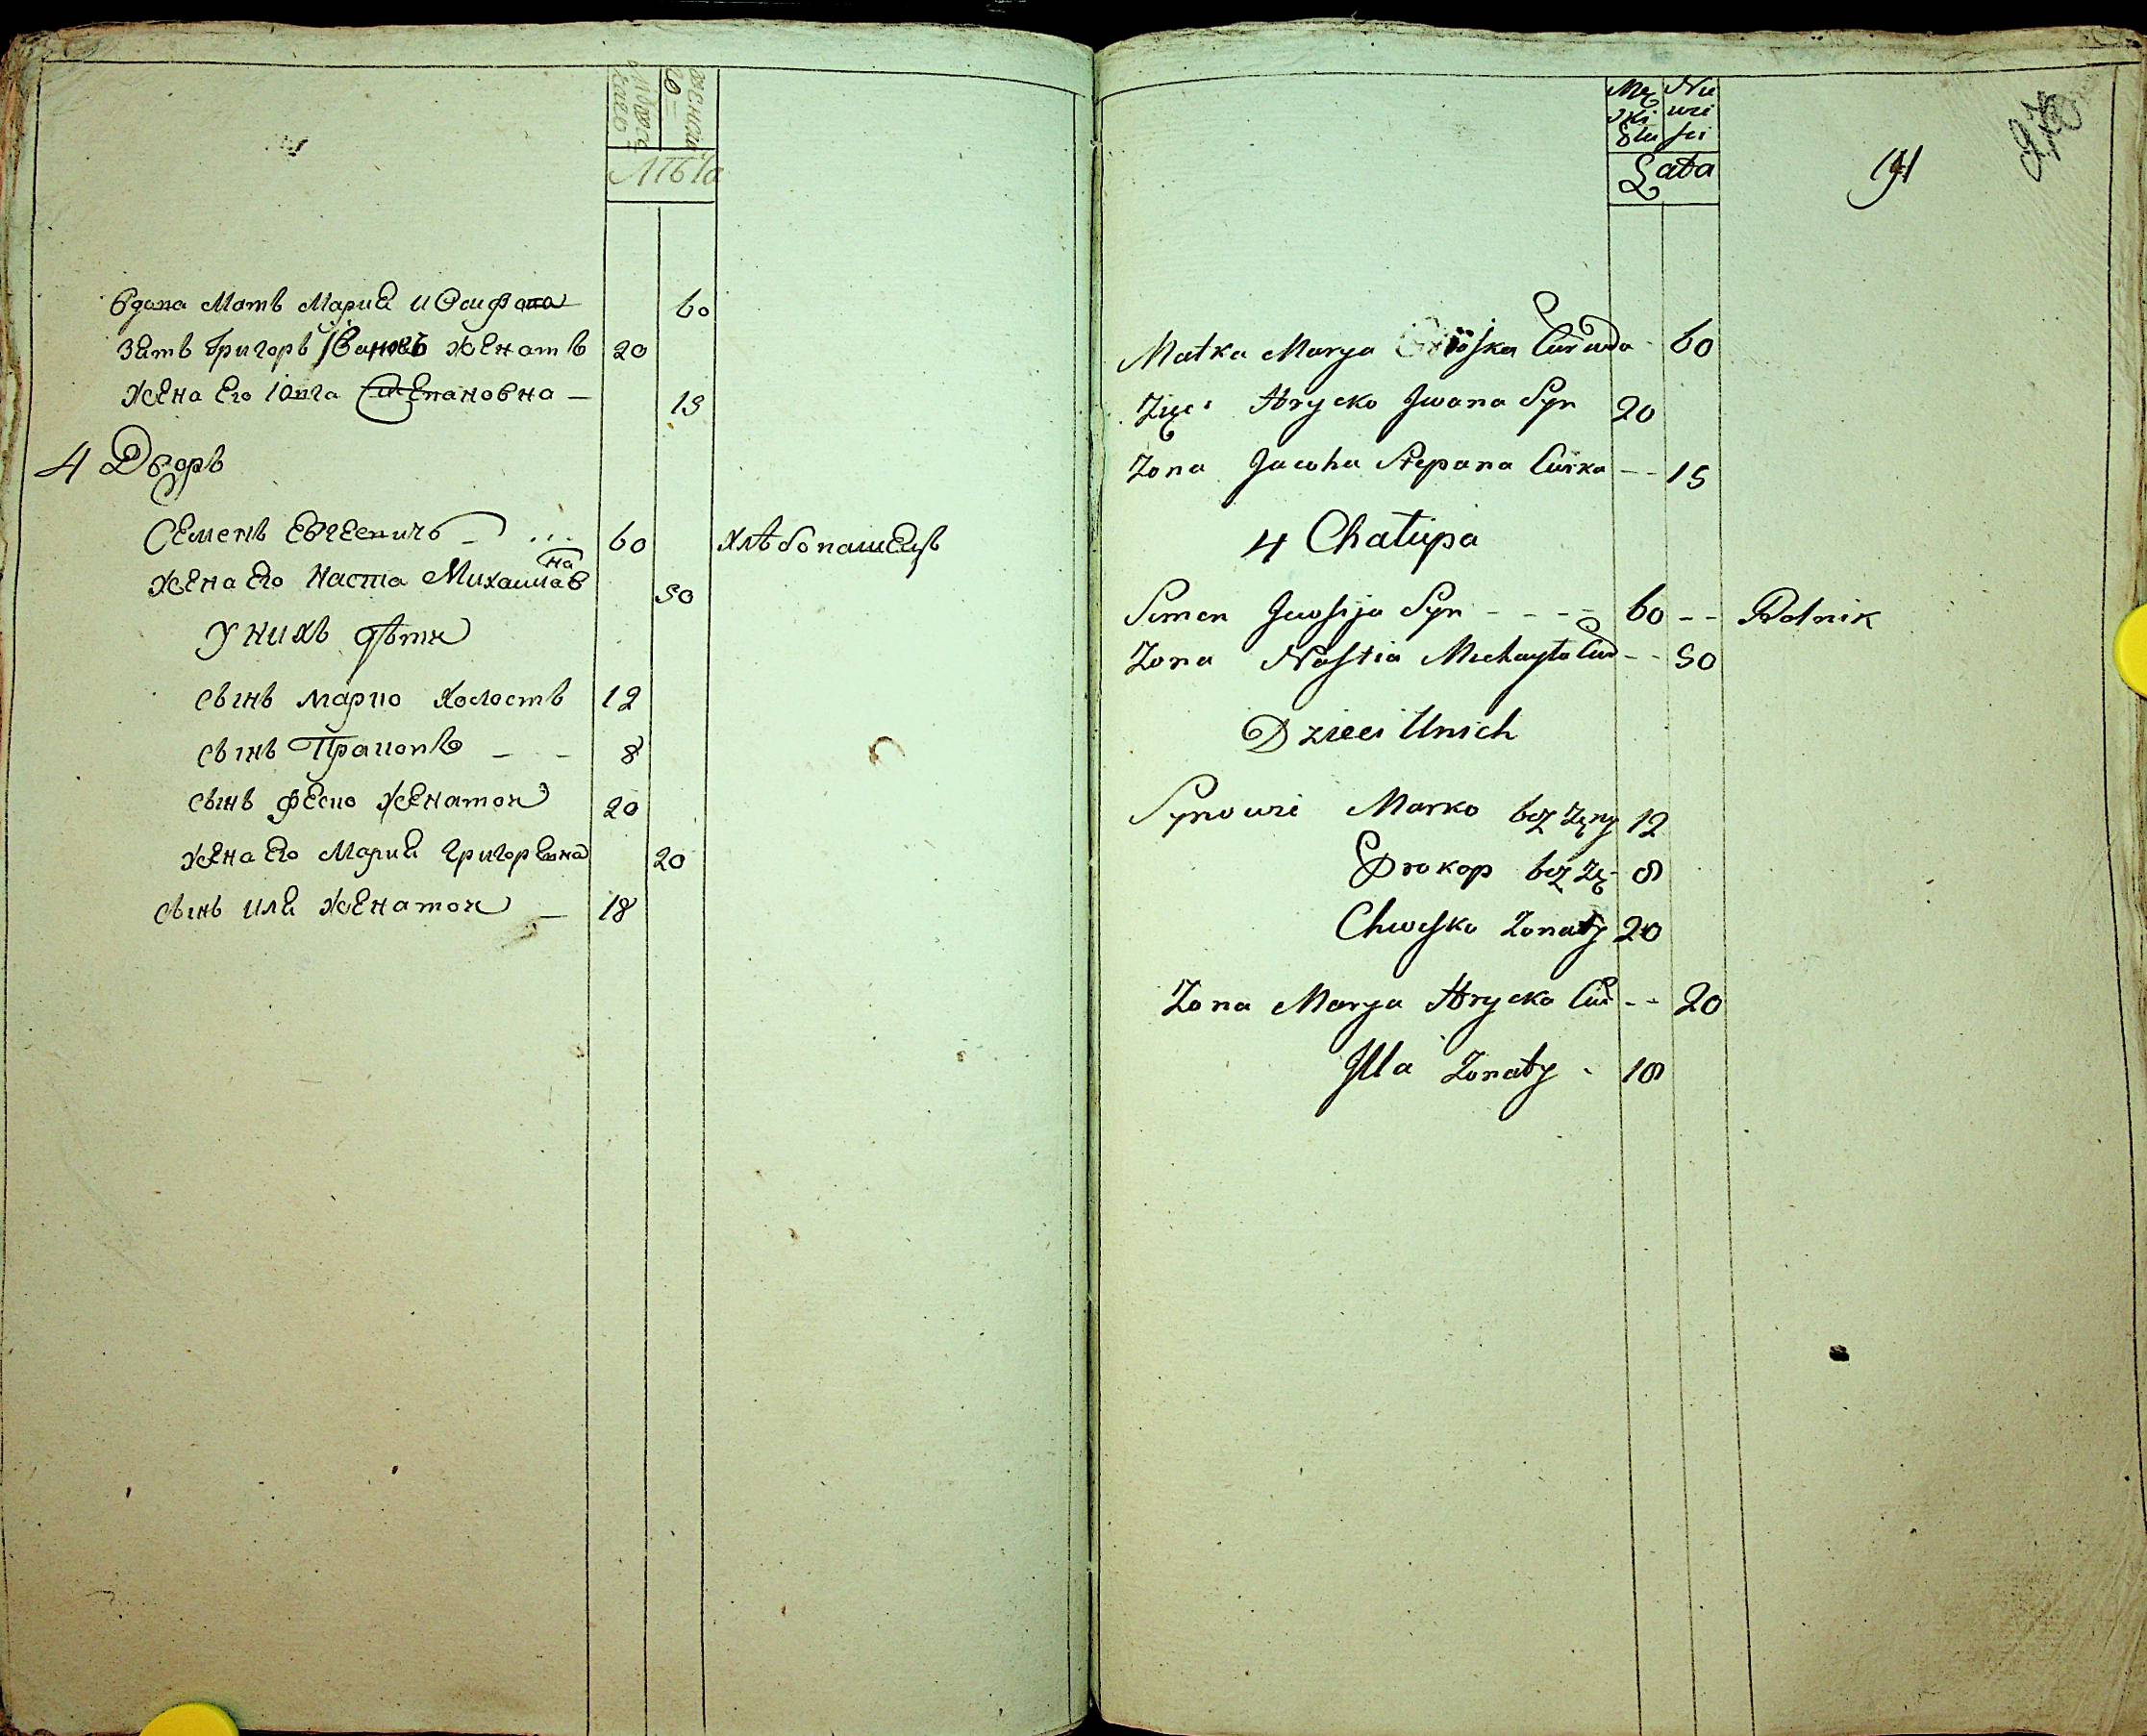 мужеска
женска
лѣта
вдова Мать Мариа иосифо 60
Зать Григоръ Ивановъ женатъ 20
жена Его Югга Степановна — 15
4 Дворъ
Семенъ Евгеевичъ — ... 60 хлѣбопашецъ
жена Его Наста Михаилавна 50
У нихъ дѣти
сынъ марко холостъ 12
сынъ Пракопъ — — 8
сынъ феско женатой 20
жена Его Мариа Григоревна 20
сынъ илиа женатой — 18
Mę Nie
zki wie
Stu sci
Lata
191
Matka Marya Cur wda - 60
Zięć Hrycko Jwana Syn 20
Zona Jewha Stepana Curka -- 15
4 Chałupa
Semen Jewsija Syn - - - - 60 -- Rolnik
Zona Nastia Michayła Cur -- 50
Dzieci Unich
Synowie Marko bez żęny 12
Prokop bez żę- 8
Chwesko Zonaty 20
Zona Marya Hrycka Cur -- 20
Jlla Zonaty - 18